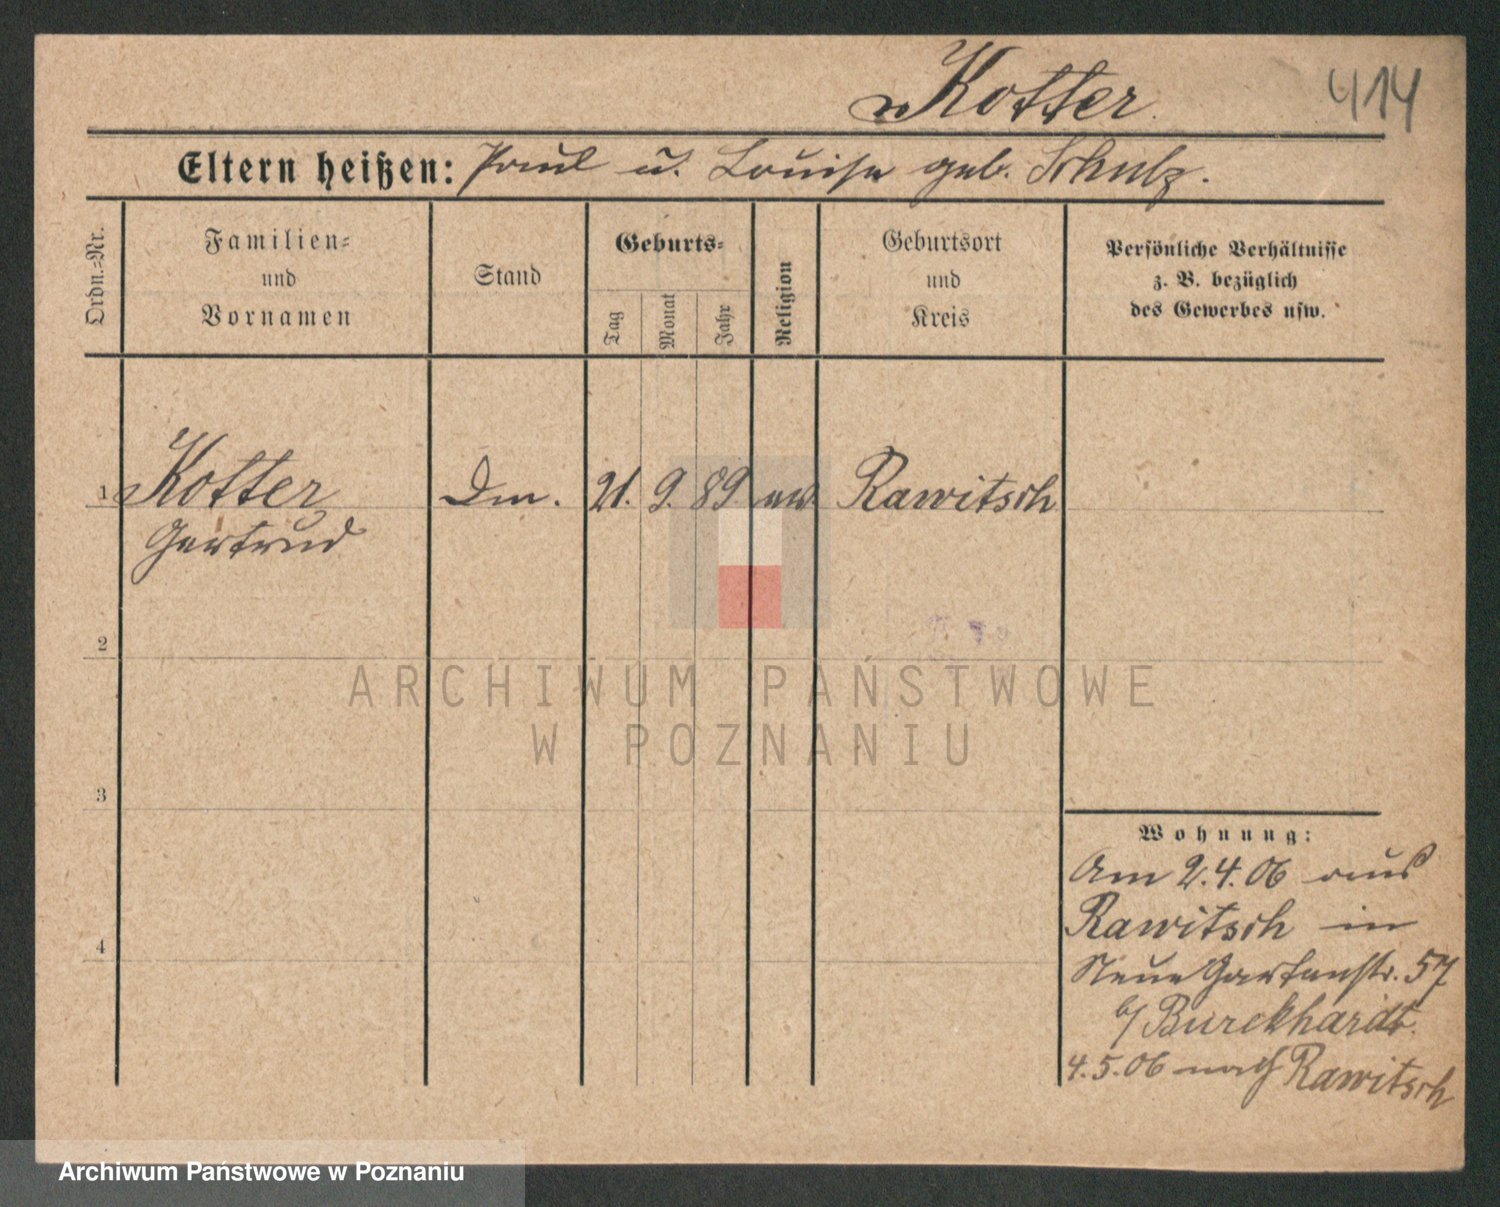 Kotter.
414
Eltern heißen: Paul u. Louise geb. Schulz.
Ordn.=Nr.
Familien=
und
Vornamen
Stand
Geburts=
Tag
Monat
Jahr
Religion
Geburtsort
und
Kreis
Persönliche Verhältnisse
z. B. bezüglich
des Gewerbes usw.
1 Kotter Dm. 21. 9. 89 ev Rawitsch
Gertrud
2
3
4
Wohnung:
Am 2.4.06 aus
Rawitsch in
Neue Gartenstr. 57
b/ Burckhardt.
4.5.06 nach Rawitsch
ARCHIWUM PAŃSTWOWE
W POZNANIU
Archiwum Państwowe w Poznaniu